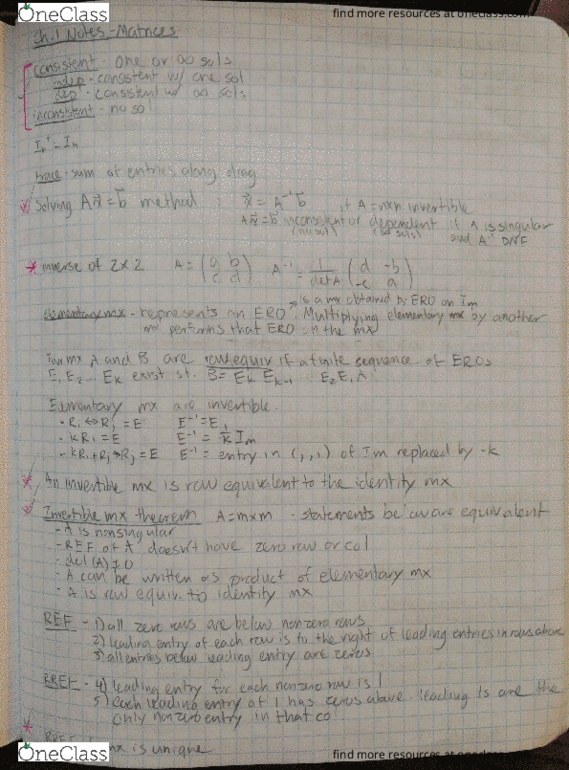 OneClass
find more resources at oneclass.com
Ch.1 Notes - Matrices
consistent - one or ∞ sols
indep - consistent w/ one sol
dep - consistent w/ ∞ sols
inconsistent - no sol
trace - sum of entries along diag
* Solving Ax⃗ = b⃗ method : x⃗ = A⁻¹b⃗ if A = nxn invertible
Ax⃗ = b⃗ inconsistent or dependent if A is singular
(no sol) (∞ sols) and A⁻¹ DNE
* inverse of 2x2 A = (a b / c d) A⁻¹ = 1/detA (d -b / -c a)
is a mx obtained by ERO on Im
elementary mx - represents an ERO. Multiplying elementary mx by another
mx performs that ERO on the mx
Two mx A and B are row equiv if a finite sequence of EROs
E, E₂ ... Ek exist st. B = Ek Ek-1 ... E₂ E, A
Elementary mx are invertible.
- Ri ↔ Rj = E E⁻¹ = E
- kRi = E E⁻¹ = 1/k Im
- kRi + Rj → Rj = E E⁻¹ = entry in (j,i) of Im replaced by -k
* An invertible mx is row equivalent to the identity mx
* Invertible mx theorem A = mxm - statements below are equivalent
- A is nonsingular
- REF of A doesn't have zero row or col
- det(A) ≠ 0
- A can be written as product of elementary mx
- A is row equiv. to identity mx
REF - 1) all zero rows are below nonzero rows
2) leading entry of each row is to the right of leading entries in rows above
3) all entries below leading entry are zeros
RREF - 4) leading entry for each nonzero row is 1
5) each leading entry of 1 has zeros above. leading 1s are the
only nonzero entry in that col
* mx is unique
OneClass
find more resources at oneclass.com